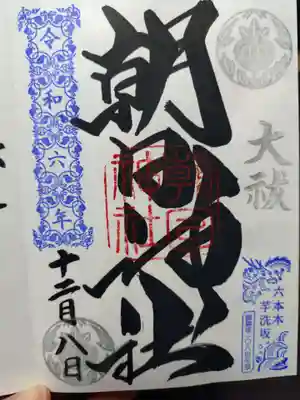 大祓
六本木
芋洗坂
朝日神社
朝日
神社
令和六年
十二月八日